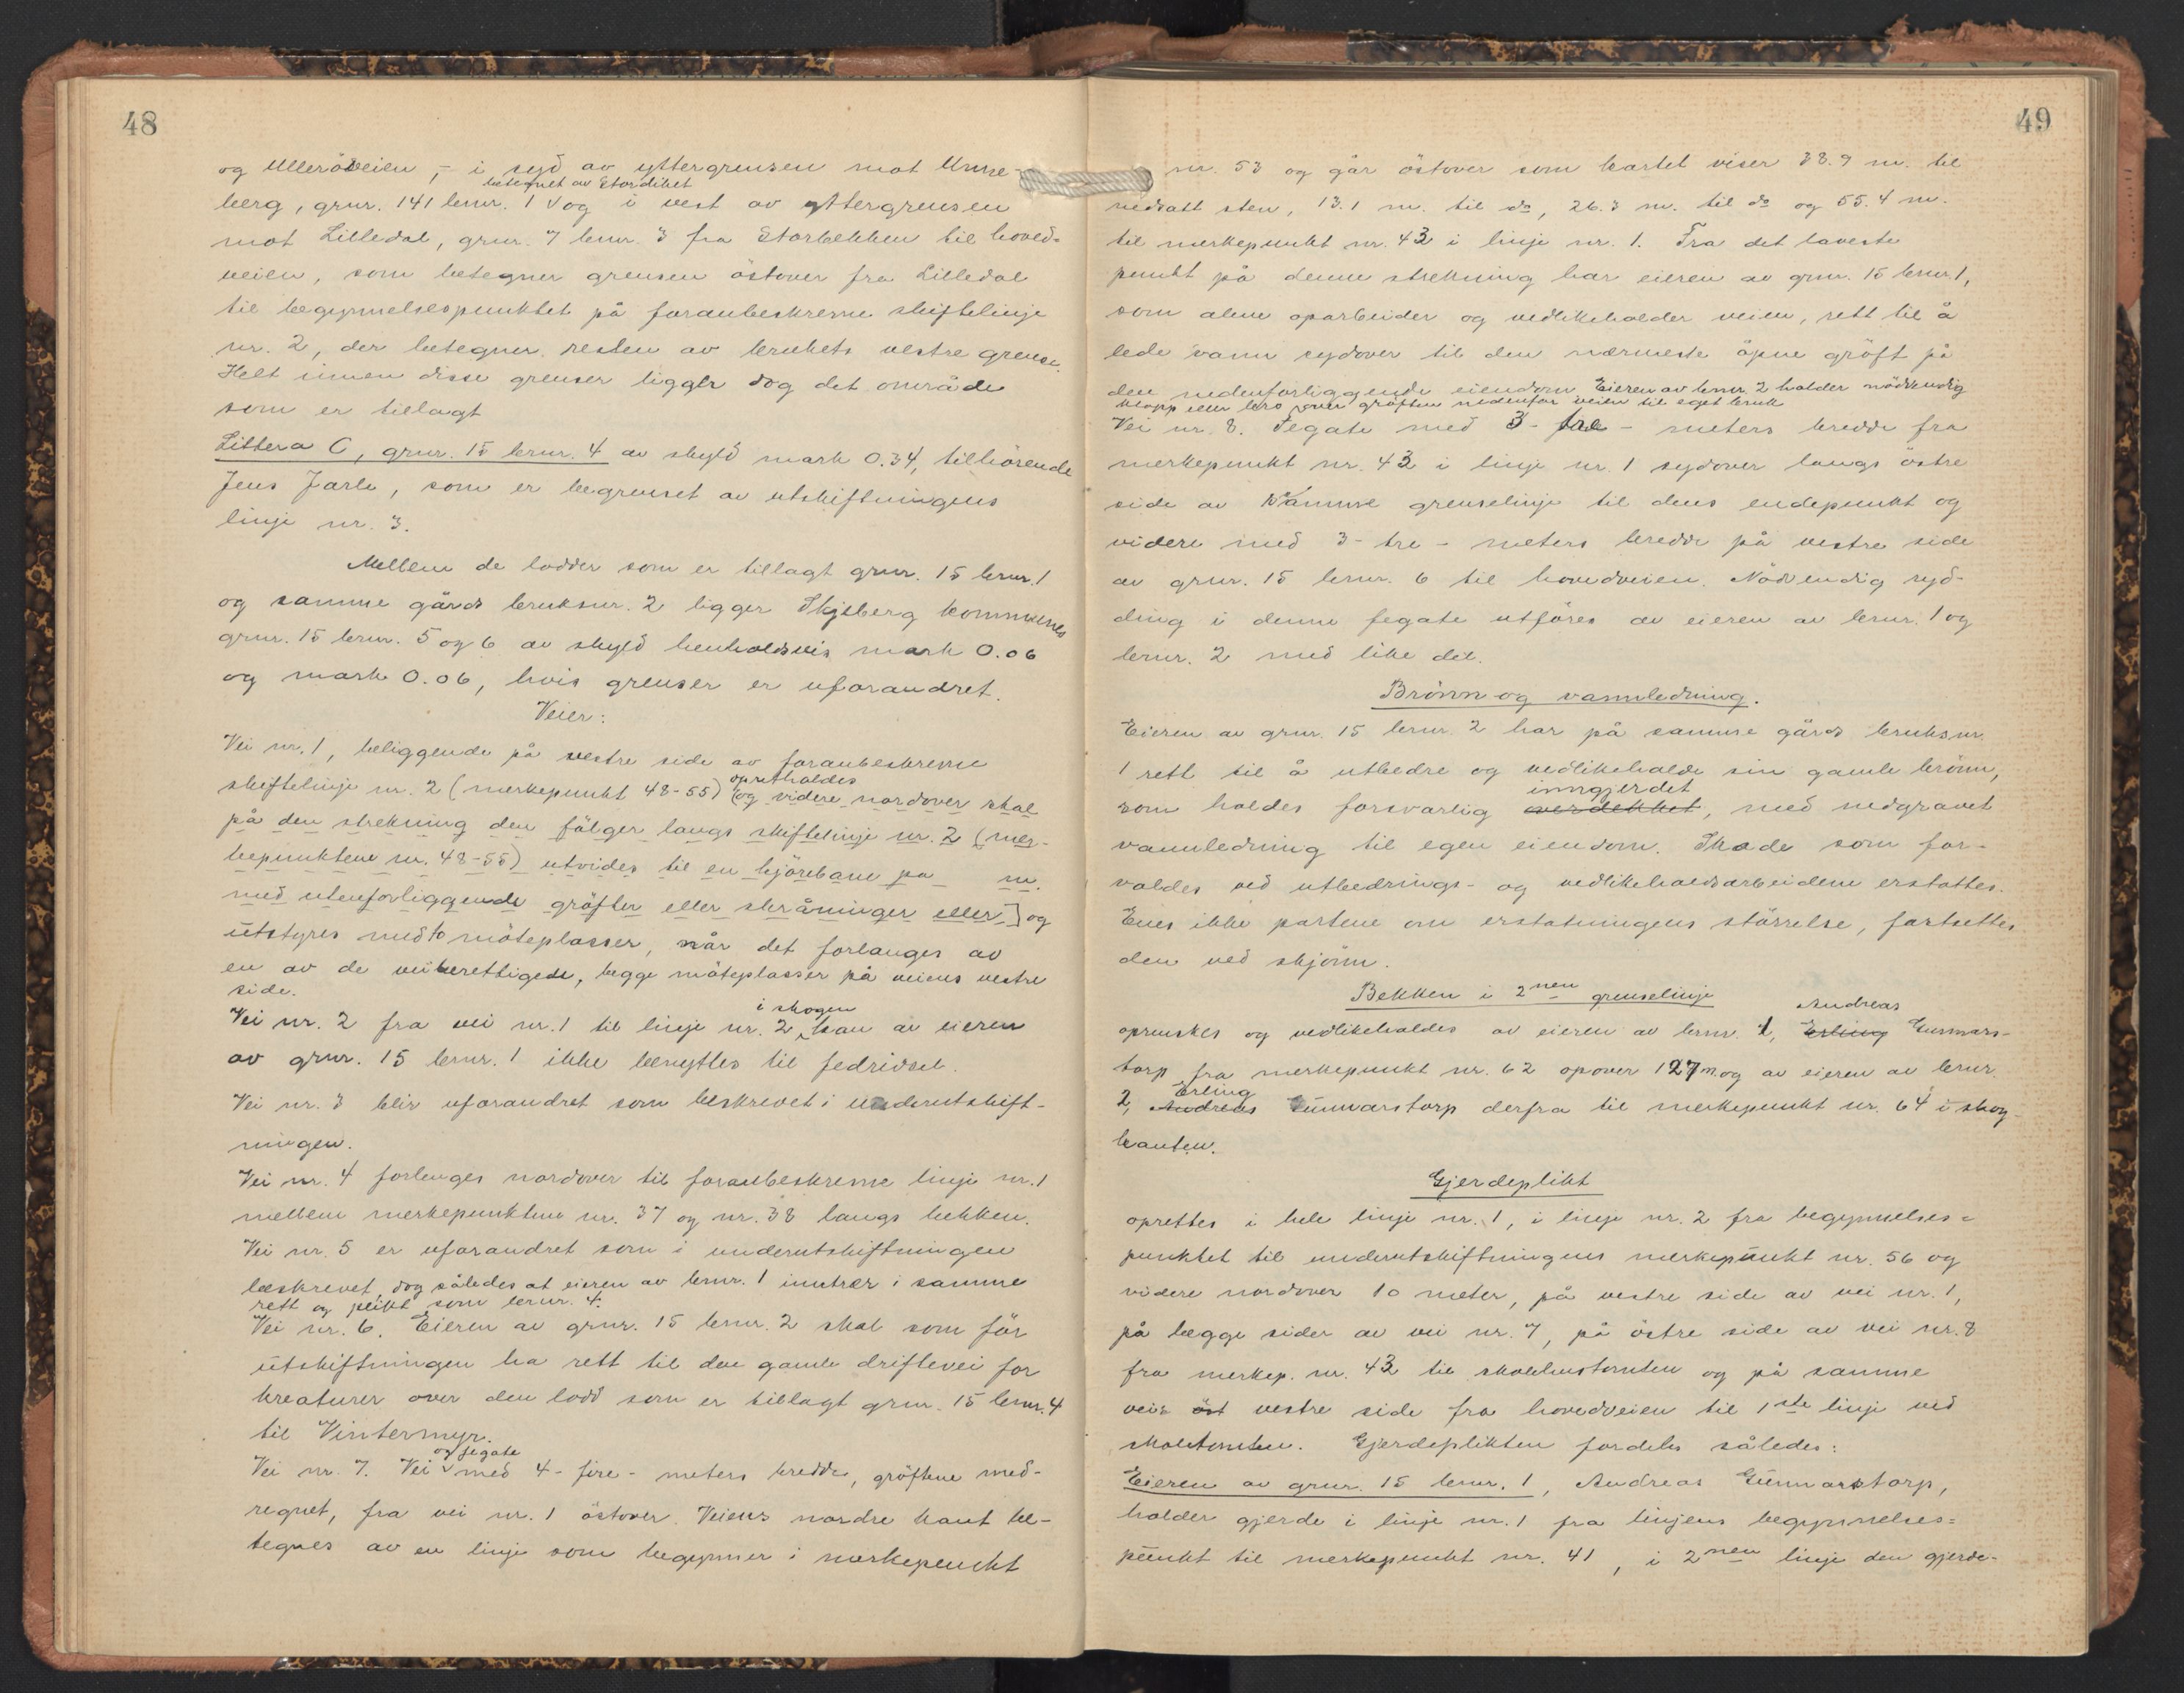 48
og Ullerøveien, - i syd av yttergrensen mot Unne-
betegnet av Stordiket
berg, grnr. 141 brnr. 1 og i vest av yttergrensen
mot Lilledal, grnr. 7 brnr. 3 fra Storbekken til hoved=
veien, som betegner grensen östover fra Lilledal
til begynnelsespunktet på foranbeskrevne skiftelinje
nr. 2, der betegner resten av brukets vestre grense.
Helt innen disse grenser ligger dog det område
som er tillagt
Littera C, grnr. 15 brnr. 4 av skyld mark 0.34, tilhörende
Jens Jarle, som er begrenset av utskiftningens
linje nr. 3.
Mellem de lodder som er tillagt grnr. 15 brnr. 1
og samme gårds bruksnr. 2 ligger Skjeberg kommunes
grnr. 15 brnr. 5 og 6 av skyld henholdsvis mark 0.06
og mark 0.06, hvis grenser er uforandret.
Veier:
Vei nr. 1, beliggende på vestre side av foranbeskrevne
opretholdes
skiftelinje nr. 2 (merkepunkt 48-55) [og videre nordover skal
på den strekning den fölger langs skiftelinje nr. 2 (mer-
kepunktene nr. 48-55) utvides til en kjörebane på m.
med utenforliggende gröfter eller skråninger eller] og
utstyres med to möteplasser, når det forlanges av
en av de veiberettigede, begge möteplasser på veiens vestre
side.
i skogen
Vei nr. 2 fra vei nr. 1 til linje nr. 2 kan av eieren
av grnr. 15 brnr. 1 ikke benyttes til fedridsel.
Vei nr. 3 blir uforandret som beskrevet i underutskift-
ningen.
Vei nr. 4 forlenges nordover til foranbeskrevne linje nr. 1
mellem merkepunktene nr. 37 og nr. 38 langs bekken.
Vei nr. 5 er uforandret som i underutskiftningen
beskrevet, dog således at eieren av brnr. 1 inntrer i samme
rett og plikt som brnr. 4.
Vei nr. 6. Eieren av grnr. 15 brnr. 2 skal som för
utskiftningen ha rett til den gamle driftevei for
kreaturer over den lodd som er tillagt grnr. 15 brnr. 4
til Vintermyr.
og fegate
Vei nr. 7. Vei med 4- fire - meters bredde, gröftene med-
regnet, fra vei nr. 1 östover. Veiens nordre kant be-
tegnes av en linje som begynner i merkepunkt
49
nr. 53 og går östover som kartet viser 38.9 m. til
nedsatt sten, 13.1 m. til do, 26.3 m. til do og 55.4 m.
til merkepunkt nr. 43 i linje nr. 1. Fra det laveste
punkt på denne strekning har eieren av grnr. 15 brnr. 1,
som alene oparbeider og vedlikeholder veien, rett til å
lede vann sydover til den nærmeste åpne gröft på
den nedenforliggende eiendom. Eieren av brnr. 2 holder nödvendig
klopp eller bro over gröften nedenfor veien til eget bruk.
Vei nr. 8. Fegate med 3- tre - meters bredde fra
merkepunkt nr. 43 i linje nr. 1 sydover langs östre
side av samme grenselinje til dens endepunkt og
videre med 3- tre - meters bredde på vestre side
av grnr. 15 brnr. 6 til hovedveien. Nödvendig ryd-
ding i denne fegate utföres av eieren av brnr. 1 og
brnr. 2 med like del.
Brönn og vannledning.
Eieren av grnr. 15 brnr. 2 har på samme gårds bruksnr.
1 rett til å utbedre og vedlikeholde sin gamle brönn,
inngjerdet
som holdes forsvarlig overdekket, med nedgravet
vannledning til egen eiendom. Skade som for-
voldes ved utbedrings- og vedlikeholdsarbeidene erstattes.
Enes ikke partene om erstatningens störrelse, fastsettes
den ved skjönn.
Bekken i 2nen grenselinje
Andreas
oprenskes og vedlikeholdes av eieren av brnr. 1, Erling Gunnars-
torp fra merkepunkt nr. 62 opover 127 m og av eieren av brnr.
Erling
2, Andreas Gunnarstorp derfra til merkepunkt nr. 64 i skog-
kanten.
Gjerdeplikt
oprettes i hele linje nr. 1, i linje nr. 2 fra begynnelses=
punktet til underutskiftningens merkepunkt nr. 56 og
videre nordover 10 meter, på vestre side av vei nr. 1,
på begge sider av vei nr. 7, på östre side av vei nr. 8
fra merkep. nr. 43 til skolehustomten og på samme
veis öst vestre side fra hovedveien til 1ste linje ved
skoletomten. Gjerdeplikten fordeles således:
Eieren av grnr. 15 brnr. 1, Andreas Gunnarstorp,
holder gjerde i linje nr. 1 fra linjens begynnelses=
punkt til merkepunkt nr. 41, i 2nen linje den gjerde-